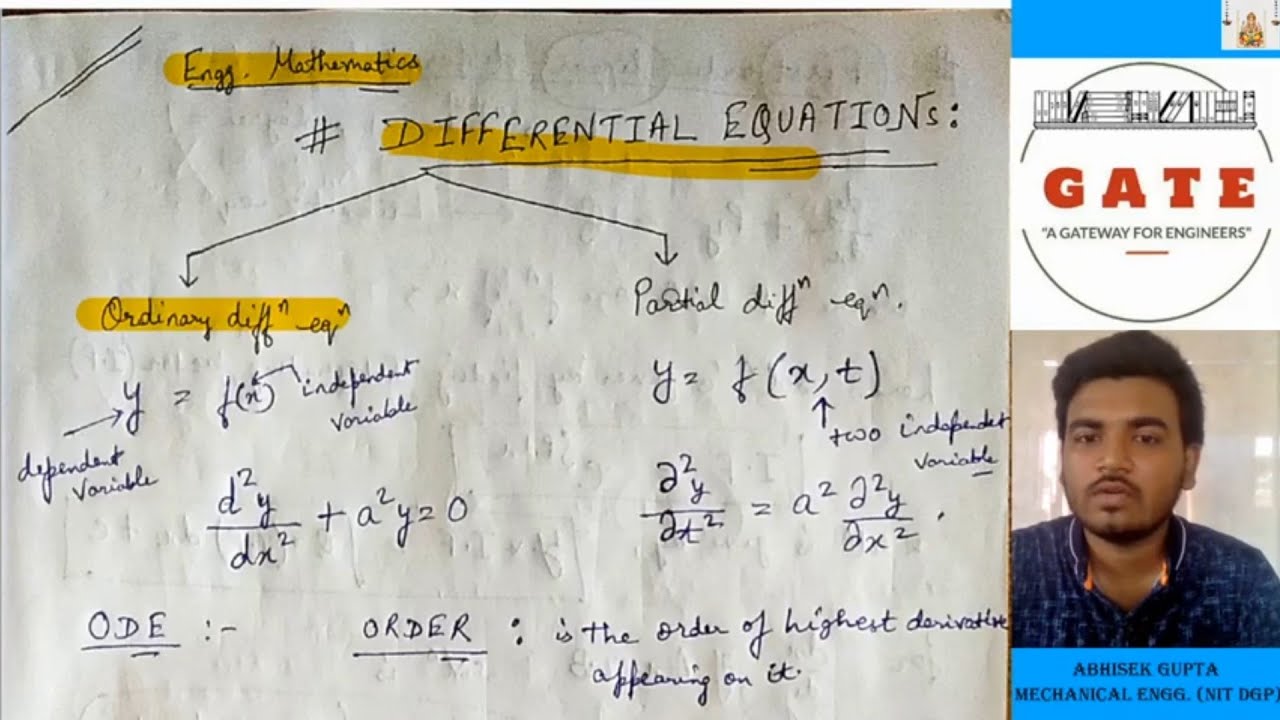 Engg. Mathematics
# DIFFERENTIAL EQUATIONS:
Ordinary diffⁿ eqⁿ
Partial diffⁿ eqⁿ.
y = f(x) independent variable
dependent variable
y = f(x,t)
two independet variable
d²y/dx² + a²y = 0
∂²y/∂t² = a² ∂²y/∂x².
ODE :- ORDER : is the order of highest derivative
appearing on it.
GATE
"A GATEWAY FOR ENGINEERS"
ABHISEK GUPTA
MECHANICAL ENGG. (NIT DGP)